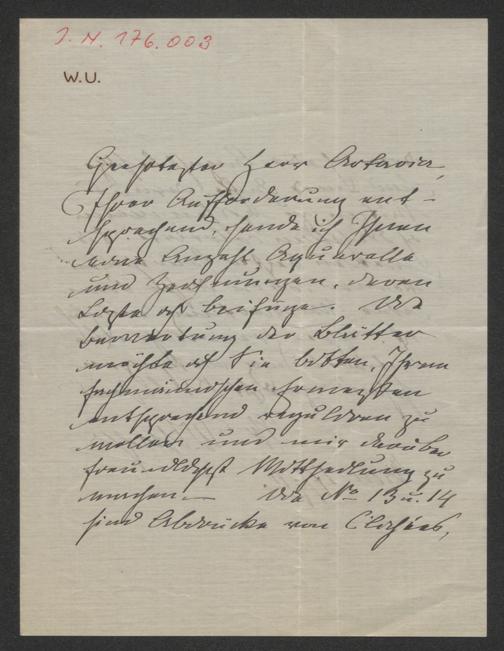 J. N. 176.003
W.U.
Geehrtester Herr Artaria,
Ihrer Aufforderung ent-
sprechend, sende ich Ihnen
eine Anzahl Aquarelle
und Zeichnungen, deren
Liste ich beifüge. Die
Bewertung der Blätter
möchte ich Sie bitten, Ihrem
fachmännischen Ermessen
entsprechend reguliren zu
wollen und mir darüber
freundlichst Mittheilung zu
machen. — Die No 13 u. 14
sind Abdrücke von Clichées,